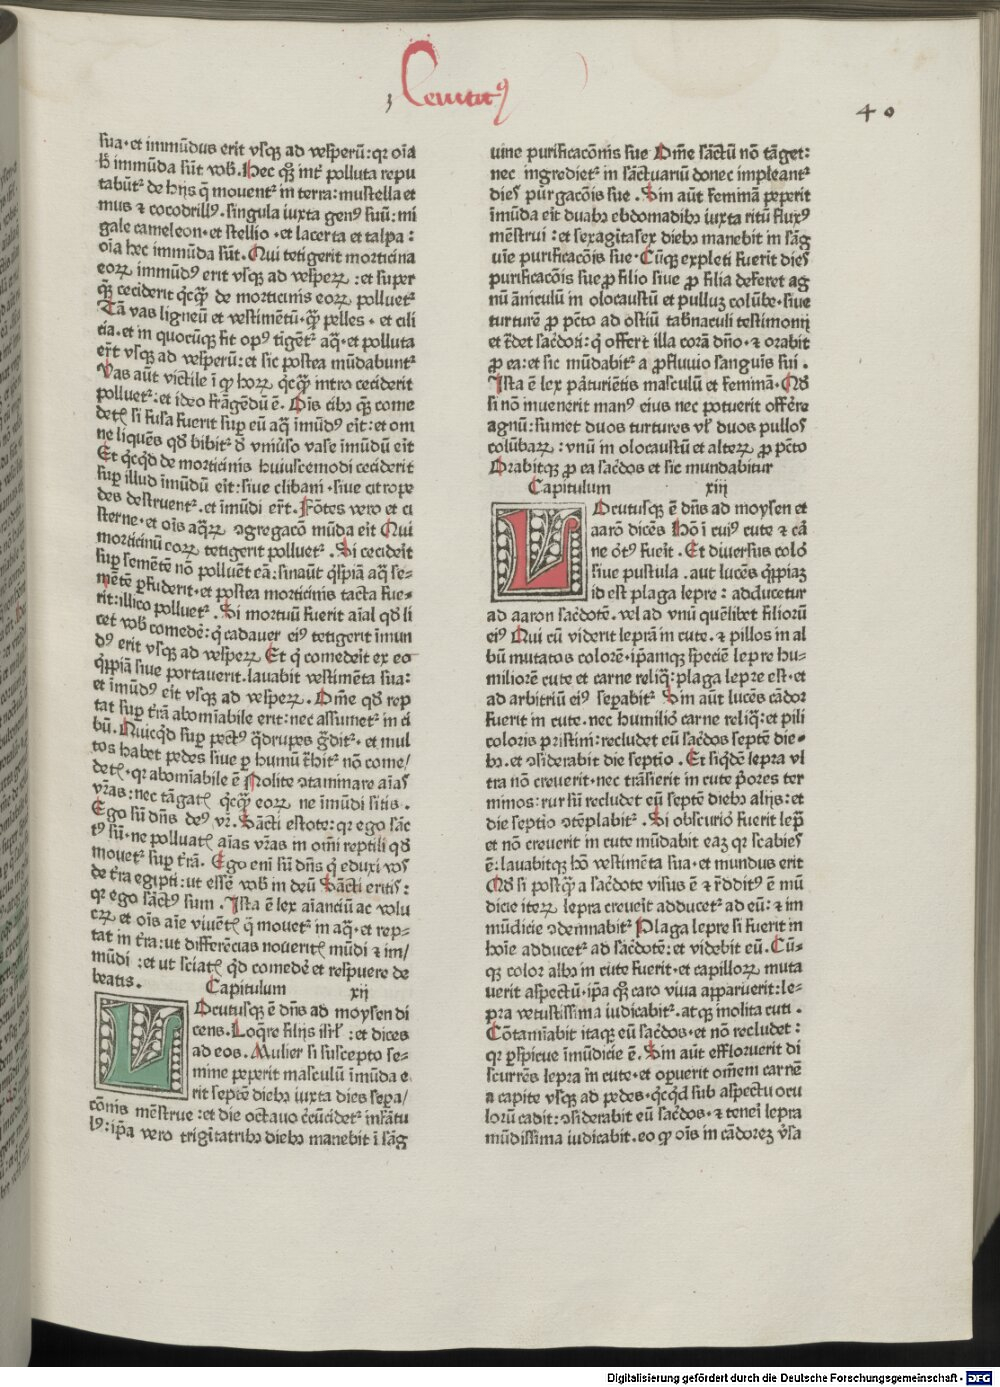 Leuitic⁹
40
sua·et immūdus erit vsqꝫ ad vesperū:qꝛ oīa
hͦ immūda sūt vob̄.Hec qꝫ int̄ polluta repu
tabūtᷣ de hijs q̄ mouentᷣ in terra:mustella et
mus ⁊ cocodrill⁹.singula iuxta gen⁹ suū:mi
gale cameleon·et stellio ·et lacerta et talpa:
oīa hec immūda sūt. Qui tetigerit morticina
eoꝝ immūd⁹ erit vsqꝫ ad vesperꝝ :et super
qꝫ ceciderit qͥcqͣꝫ de morticinis eoꝝ polluetᷣ
Tā vas ligneū et vestimētū·qͣꝫ pelles · et cili
cia.et in quocūqꝫ fit op⁹ tigētᷣ aqͣ·et polluta
er̄t vsqꝫ ad vesperū:et sic postea mūdabuntᷣ
Vas aūt fictile ī qͦ hoꝝ qͥcqͣꝫ intro ceciderit
polluetᷣ:et ideo frāgēdū ē. Oīs cib⁹ qꝫ come
detꝭ si fusa fuerit sup eū aqͣ īmūd⁹ eīt:et om
ne liquēs qd̄ bibitᷣ d̄ vniūso vase īmūdū eīt
Et qͥcqͥd de morticinis huiuscemodi ceciderit
suꝑ illud īmūdū eīt:siue clibani ·siue citrope
des destruentᷣ.et īmūdi er̄t. Fōtes vero et ci
sterne·et oīs aqͣꝝ ꝯgregacō mūda eīt Qui
morticinū eoꝝ tetigerit polluetᷣ . Si cecideīt
suꝑ semētē nō polluēt eā:sinaūt qͥspiā aqͣ se-
mētē ꝑfuderit·et postea morticinis tacta fue-
rit:illico polluetᷣ . Si mortuū fuerit aīal qd̄ li
cet vob̄ comedē:qͥ cadauer ei⁹ tetigerit īmun
d⁹ erit vsqꝫ ad vesperꝝ Et qͥ comedeīt ex eo
qͥppiā siue portauerit.lauabit vestimēta sua:
et īmūd⁹ eīt vsqꝫ ad vesperꝝ. Ome qd̄ rep
tat suꝑ t̄rā abomīabile erit:nec assumetᷣ in ci
bū. Quicqͥd suꝑ pect⁹ qͣdrupes gͣditᷣ·et mul
tos habet pedes siue ꝑ humū t̄hitᷣ nō come/
detꝭ·qꝛ abomīabile ē Nolite ꝯtaminare aīas
vr̄as:nec tāgatꝭ qͥcqͣꝫ eoꝝ ne īmūdi sitis .
Ego sū dn̄s de⁹ vr̄. Sācti estote:qꝛ ego sāc
t⁹ sū·ne polluatꝭ aīas vr̄as in om̄i reptili qd̄
mouetᷣ suꝑ t̄rā. Ego eni sū dn̄s qͥ eduxi vos
de t̄ra egipti:ut essē vob̄ in deū Sācti eritis:
qꝛ ego sāct⁹ sum . Ista ē lex aīanciū ac volu
cꝝ et oīs aīe viuētꝭ q̄ mouetᷣ in aqͣ·et rep-
tat in t̄ra:ut differēcias noueritꝭ mūdi ⁊ im/
mūdi :et ut sciatꝭ qͥd comedē et respuere de
beatis.
Capitulum xij
LOcutusqꝫ ē dn̄s ad moysen di
cens. Loqͥre filijs isr̄l :et dices
ad eos. Mulier si suscepto se-
mine peperit masculū īmūda e-
rit septē diebꝫ iuxta dies seꝑa/
cōnis mēstrue :et die octauo cͥcūcidetᷣ infātu
l⁹:ip̄a vero trigītatribꝫ diebꝫ manebit ī sāg
uine purificacōnis sue Om̄e sāctū nō tāget:
nec ingredietᷣ in sāctuariū donec impleantᷣ
dies purgacōis sue . Sin aūt feminā peperit
īmūda eīt duabꝫ ebdomadibꝫ iuxta ritū flux⁹
mēstrui :et sexagītasex diebꝫ manebit in sāg
uīe purificacōis sue· Cūqꝫ expleti fuerit dies
purificacōis sue ꝓ filio siue ꝓ filia deferet ag
nū āniculū in olocaustū et pulluꝫ colūbe·siue
turturē ꝓ pctō ad ostiū tab̄naculi testimonij
et t̄det sac̄doti: qͥ offert illa corā dn̄o·⁊ orabit
ꝓ ea:et sic mūdabitᷣ a ꝓfluuio sanguīs sui .
Ista ē lex pārturiētis masculū et feminā· Qd̄
si nō inuenerit man⁹ eius nec potuerit offēre
agnū:sumet duos turtures vl̄ duos pullos
colūbaꝝ :vnū in olocaustū et alteꝝ ꝓ pctō
Orabitqꝫ ꝓ ea sac̄dos et sic mundabitur
Capitulum xiij
LOcutusqꝫ ē dn̄s ad moysen et
aarō dicēs Hō ī cui⁹ cute ⁊ cā
ne ōt⁹ fueīt . Et diuersus colō
siue pustula .aut lucēs qͥppiaꝫ
id est plaga lepre: adducetur
ad aaron sac̄dotē. vel ad vnū quēlibet filioru
ei⁹ Qui cū viderit leprā in cute.⁊ pillos in al
bū mutatos colorē·ip̄amqꝫ speciē lepre hu-
miliorē cute et carne reliqͣ:plaga lepre est·et
ad arbitriū ei⁹ seꝑabitᷣ Sin aūt lucēs cādor
fuerit in cute.nec humilio carne reliqͣ:et pili
coloris pristini:recludet eū sac̄dos septē die-
bꝫ.et ꝯsiderabit die septio . Et siqͥdē lepra vl
tra nō creuerit·nec trāsierit in cute pͥores ter
minos:rursū recludet eū septē diebꝫ alijs:et
die septio ꝯtēplabitᷣ. Si obscurio fuerit lepͣ
et nō creuerit in cute mūdabit eaꝫ qꝛ scabies
ē:lauabitqꝫ hō vestimēta sua·et mundus erit
Qd̄ si postqͣ a sac̄dote visus ē ⁊ r̄ddit⁹ ē mū
dicie iteꝝ lepra creueīt adducetᷣ ad eū:⁊ im
mūdicie ꝯdemnabitᷣ Plaga lepre si fuerit in
hoīe adducetᷣ ad sac̄dotē:et videbit eū. Cū-
qꝫ color albꝫ in cute fuerit·et capilloꝝ muta
uerit aspectū·ip̄a qꝫ caro viua apparuerit:le-
pra vetustissima iudicabitᷣ.atqꝫ inolita cuti .
Cōtamīabit itaqꝫ eū sac̄dos·et nō recludet:
qꝛ ꝑspicue īmūdicie ē. Sin aūt effloruerit di
scurrēs lepra in cute·et oꝑuerit om̄em carnē
a capite vsqꝫ ad pedes·qͥcqͥd sub aspectū ocu
lorū cadit:ꝯsiderabit eū sac̄dos·⁊ teneī lepra
mūdissima iudicabit.eo qͦ oīs in cādoreꝫ v̄sa
Digitalisierung gefördert durch die Deutsche Forschungsgemeinschaft - DFG